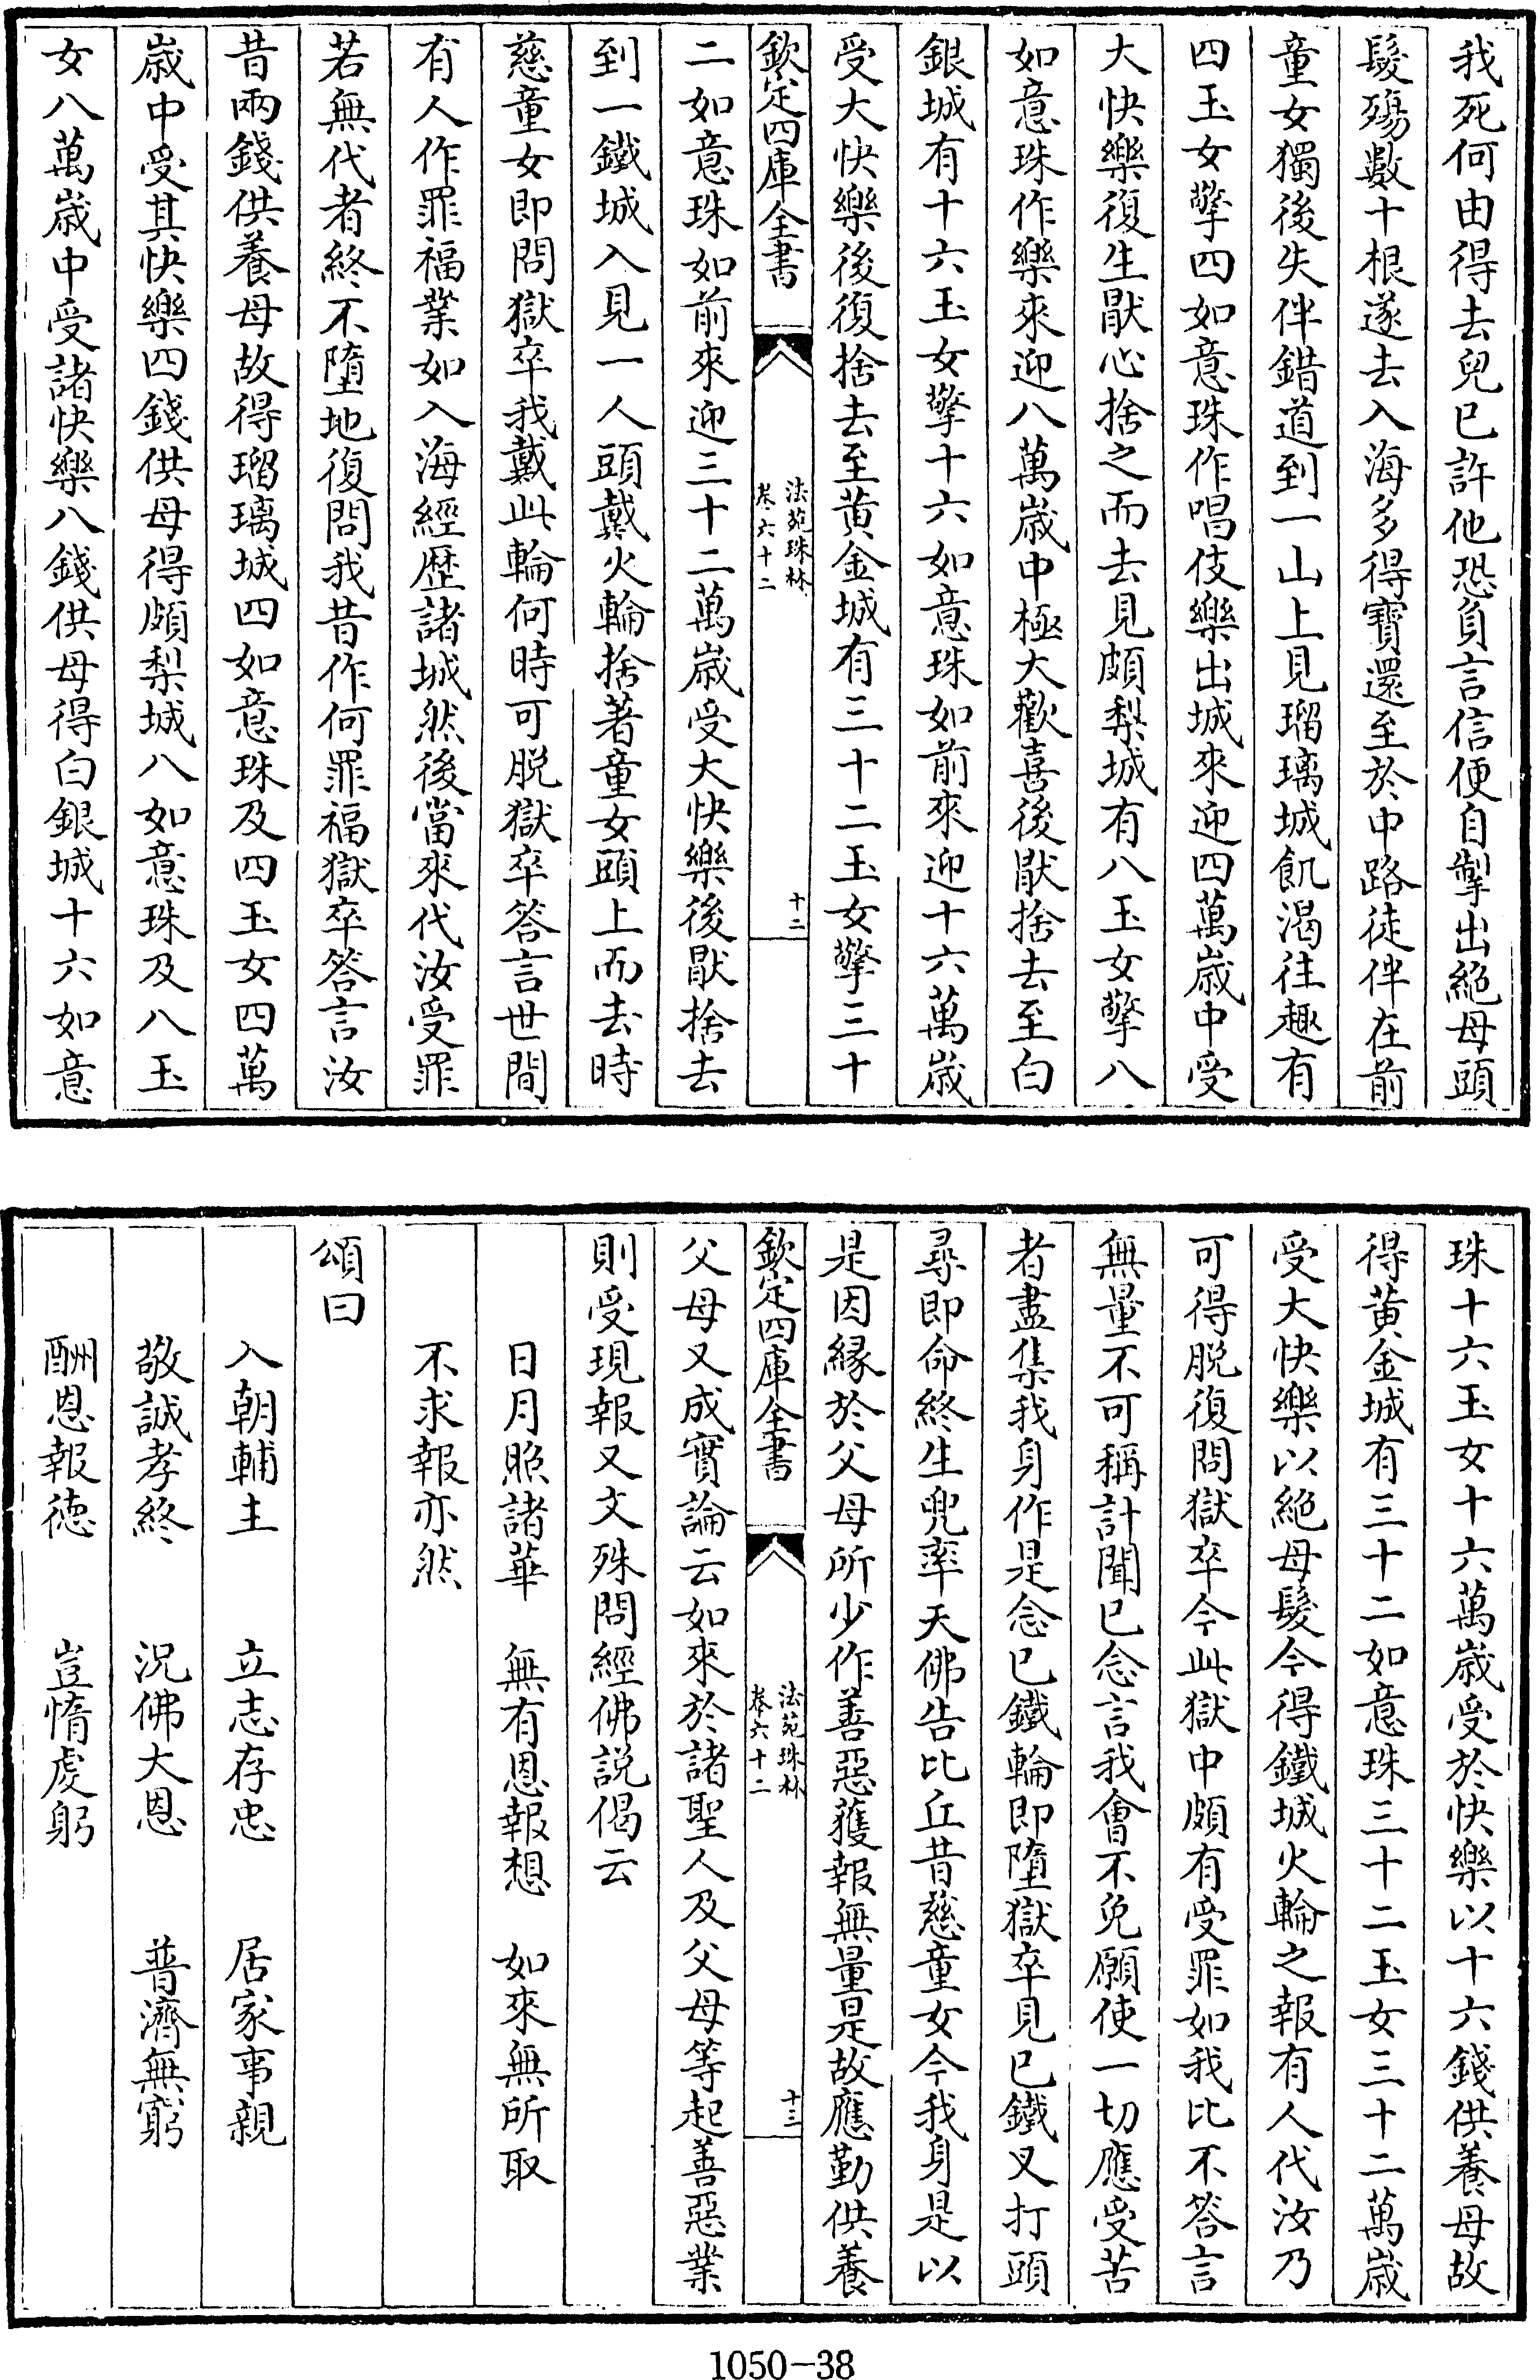 我死何由得去兒已許他恐負言信便自掣出絶母頭
髮殤數十根遂去入海多得寶還至於中路徒伴在前
童女獨後失伴錯道到一山上見瑠璃城飢渴往趣有
四玉女擎四如意珠作唱伎樂出城來迎四萬歲中受
大快樂復生猒心捨之而去見頗梨城有八玉女擎八
如意珠作樂來迎八萬歲中極大歡喜後猒捨去至白
銀城有十六玉女擎十六如意珠如前來迎十六萬歲
受大快樂後復捨去至黄金城有三十二玉女擎三十
欽定四庫全書
法苑珠林
卷六十二
十二
二如意珠如前來迎三十二萬歲受大快樂後猒捨去
到一鐵城入見一人頭戴火輪捨著童女頭上而去時
慈童女即問獄卒我戴此輪何時可脱獄卒答言世間
有人作罪福業如入海經歴諸城然後當來代汝受罪
若無代者終不墮地復問我昔作何罪福獄卒答言汝
昔兩錢供養母故得瑠璃城四如意珠及四玉女四萬
歲中受其快樂四錢供母得頗梨城八如意珠及八玉
女八萬歲中受諸快樂八錢供母得白銀城十六如意
珠十六玉女十六萬歲受於快樂以十六錢供養母故
得黄金城有三十二如意珠三十二玉女三十二萬歲
受大快樂以絶母髮今得鐵城火輪之報有人代汝乃
可得脱復問獄卒今此獄中頗有受罪如我比不答言
無量不可稱計聞已念言我會不免願使一切應受苦
者盡集我身作是念已鐵輪即墮獄卒見已鐵叉打頭
尋即命終生兜率天佛告比丘昔慈童女今我身是以
是因縁於父母所少作善惡獲報無量是故應勤供養
欽定四庫全書
法苑珠林
卷六十二
十三
父母又成實論云如來於諸聖人及父母等起善惡業
則受現報又文殊問經佛説偈云
日月照諸華　無有恩報想　如來無所取
不求報亦然
頌曰
入朝輔主　立志存忠　居家事親
敬誠孝終　況佛大恩　普濟無窮
酬恩報德　豈惰虔躬
1050-38